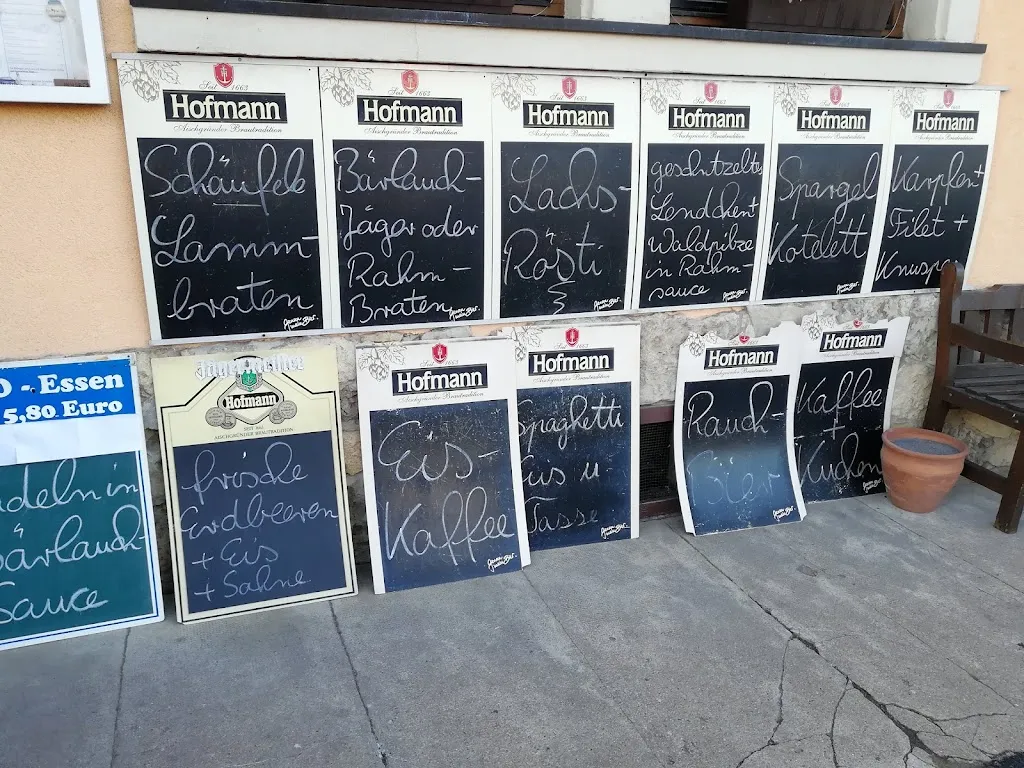 Seit 1663
Hofmann
Aischgründer Brautradition
Schäufele
Lamm-
braten
Seit 1663
Hofmann
Aischgründer Brautradition
Bärlauch-
Jäger oder
Rahm-
Braten
Seit 1663
Hofmann
Aischgründer Brautradition
Lachs-
Rösti
Seit 1663
Hofmann
Aischgründer Brautradition
geschnitzeltes
Lendchen+
Waldpilze
in Rahm-
sauce
Seit 1663
Hofmann
Aischgründer Brautradition
Spargel
Kotelett
Seit 1663
Hofmann
Aischgründer Brautradition
Karpfen+
Filet +
Knusp
O - Essen
5,80 Euro
udeln in
Bärlauch-
Sauce
Hofmann
SEIT 1663
AISCHGRÜNDER BRAUTRADITION
frische
Erdbeeren
+ Eis
+ Sahne
Seit 1663
Hofmann
Aischgründer Brautradition
Eis-
Kaffee
1663
Hofmann
Aischgründer Brautradition
Spaghetti
Eis u.
Tasse
Hofmann
Aischgründer Brautradition
Rauch-
Bier
Hofmann
Aischgründer Brautradition
Kaffee
+
Kuchen